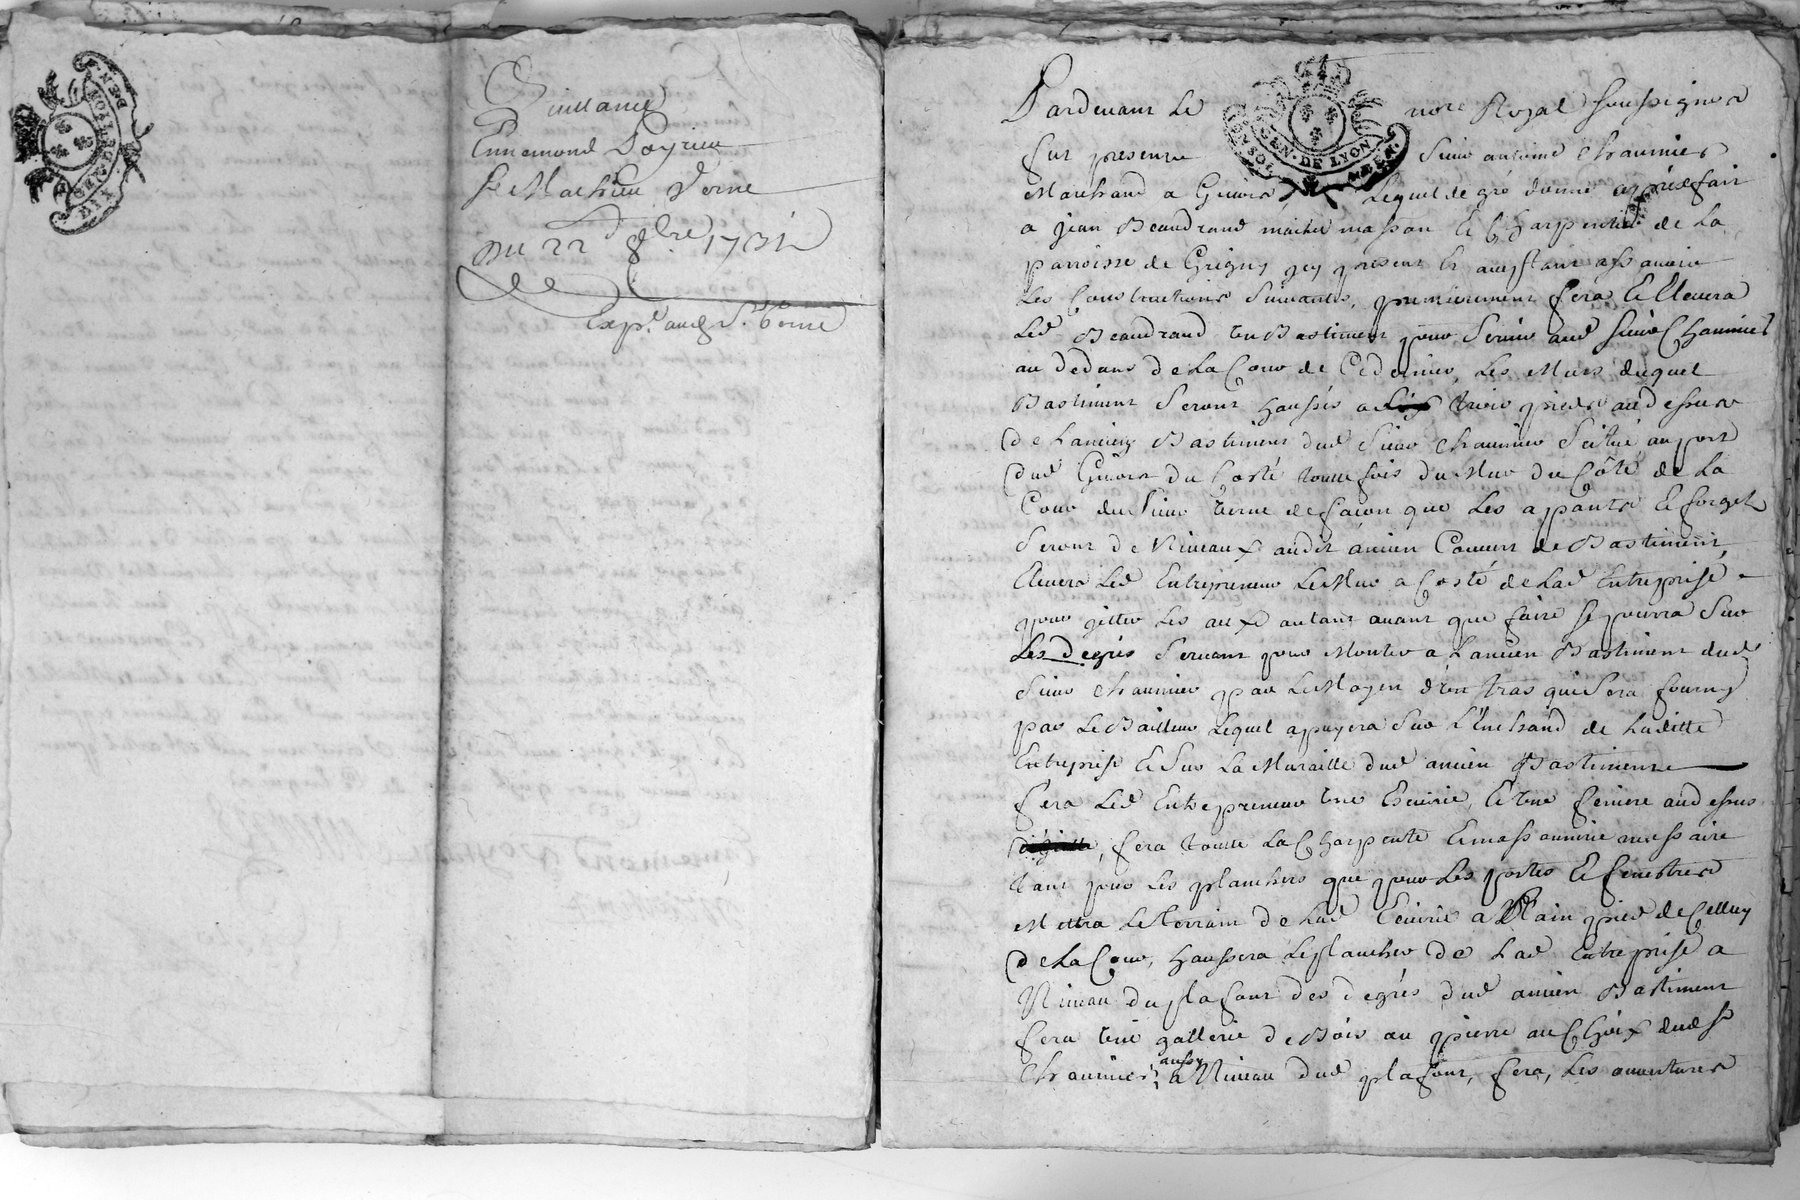 Quittance
Ennemond Poyrieu
Sr Mathieu Verne
Du 22 8bre 1731
Exp. aud Sr Verne
GEN. DE LYON
Pardevant Le notre Royal soussigné
fut present Sieur antoine Chaumier
Marchand a Givors, Lequel de gré donne a prixfait
a jean Beaudrand maitre masson Et Charpentier de La
parroisse de Grigny icy present Et acceptant assavoir
Les Constructions Suivantes, premierement fera Et Elevera
Led Beaudrand un Bastiment pour Servir aud sieur Chaumier
au dedans de La Cour de Ce dernier, Les Murs duquel
Bastiment Seront haussés a trois pieds au dessus
de Lancien Bastiment dud Sieur Chaumier Scitué au port
dud Givors du Costé toutte fois du Mur du Côté de La
Cour du Sieur Verne de façon que Les apants Et forget
Seront de Niveaux audit ancien Couvert de Bastiment,
Elevera Led Entrepreneur Le Mur a Costé de Lad Entreprise
pour jetter Les aux autant avant que faire se pourra Sur
Les degrés Servant pour Monter a Lancien Bastiment dud
Sieur Chaumier par Le Moyen d'un tras qui Sera fourny
par Le Bailleur Lequel appuyera Sur de Laditte
Entreprise Et Sur La Muraille dud ancien Bastiment
fera Led Entrepreneur une Ecuirie, Et une feniere au dessus
fera toutte La Charpente Et massonnerie nessaire
tant pour Les planchers que pour Les portes Et fenestres
Mettra Le Terrain de Lad Ecuirie a Plain pied de Celluy
de La Cour, haussera Le plancher de Lad Entreprise a
Niveau du plafont des degrés dud ancien Bastiment
fera une gallerie de Bois ou pierre au Choix dud Sr
Chaumier aussy a Niveau dud plafont, fera, Les ouvertures